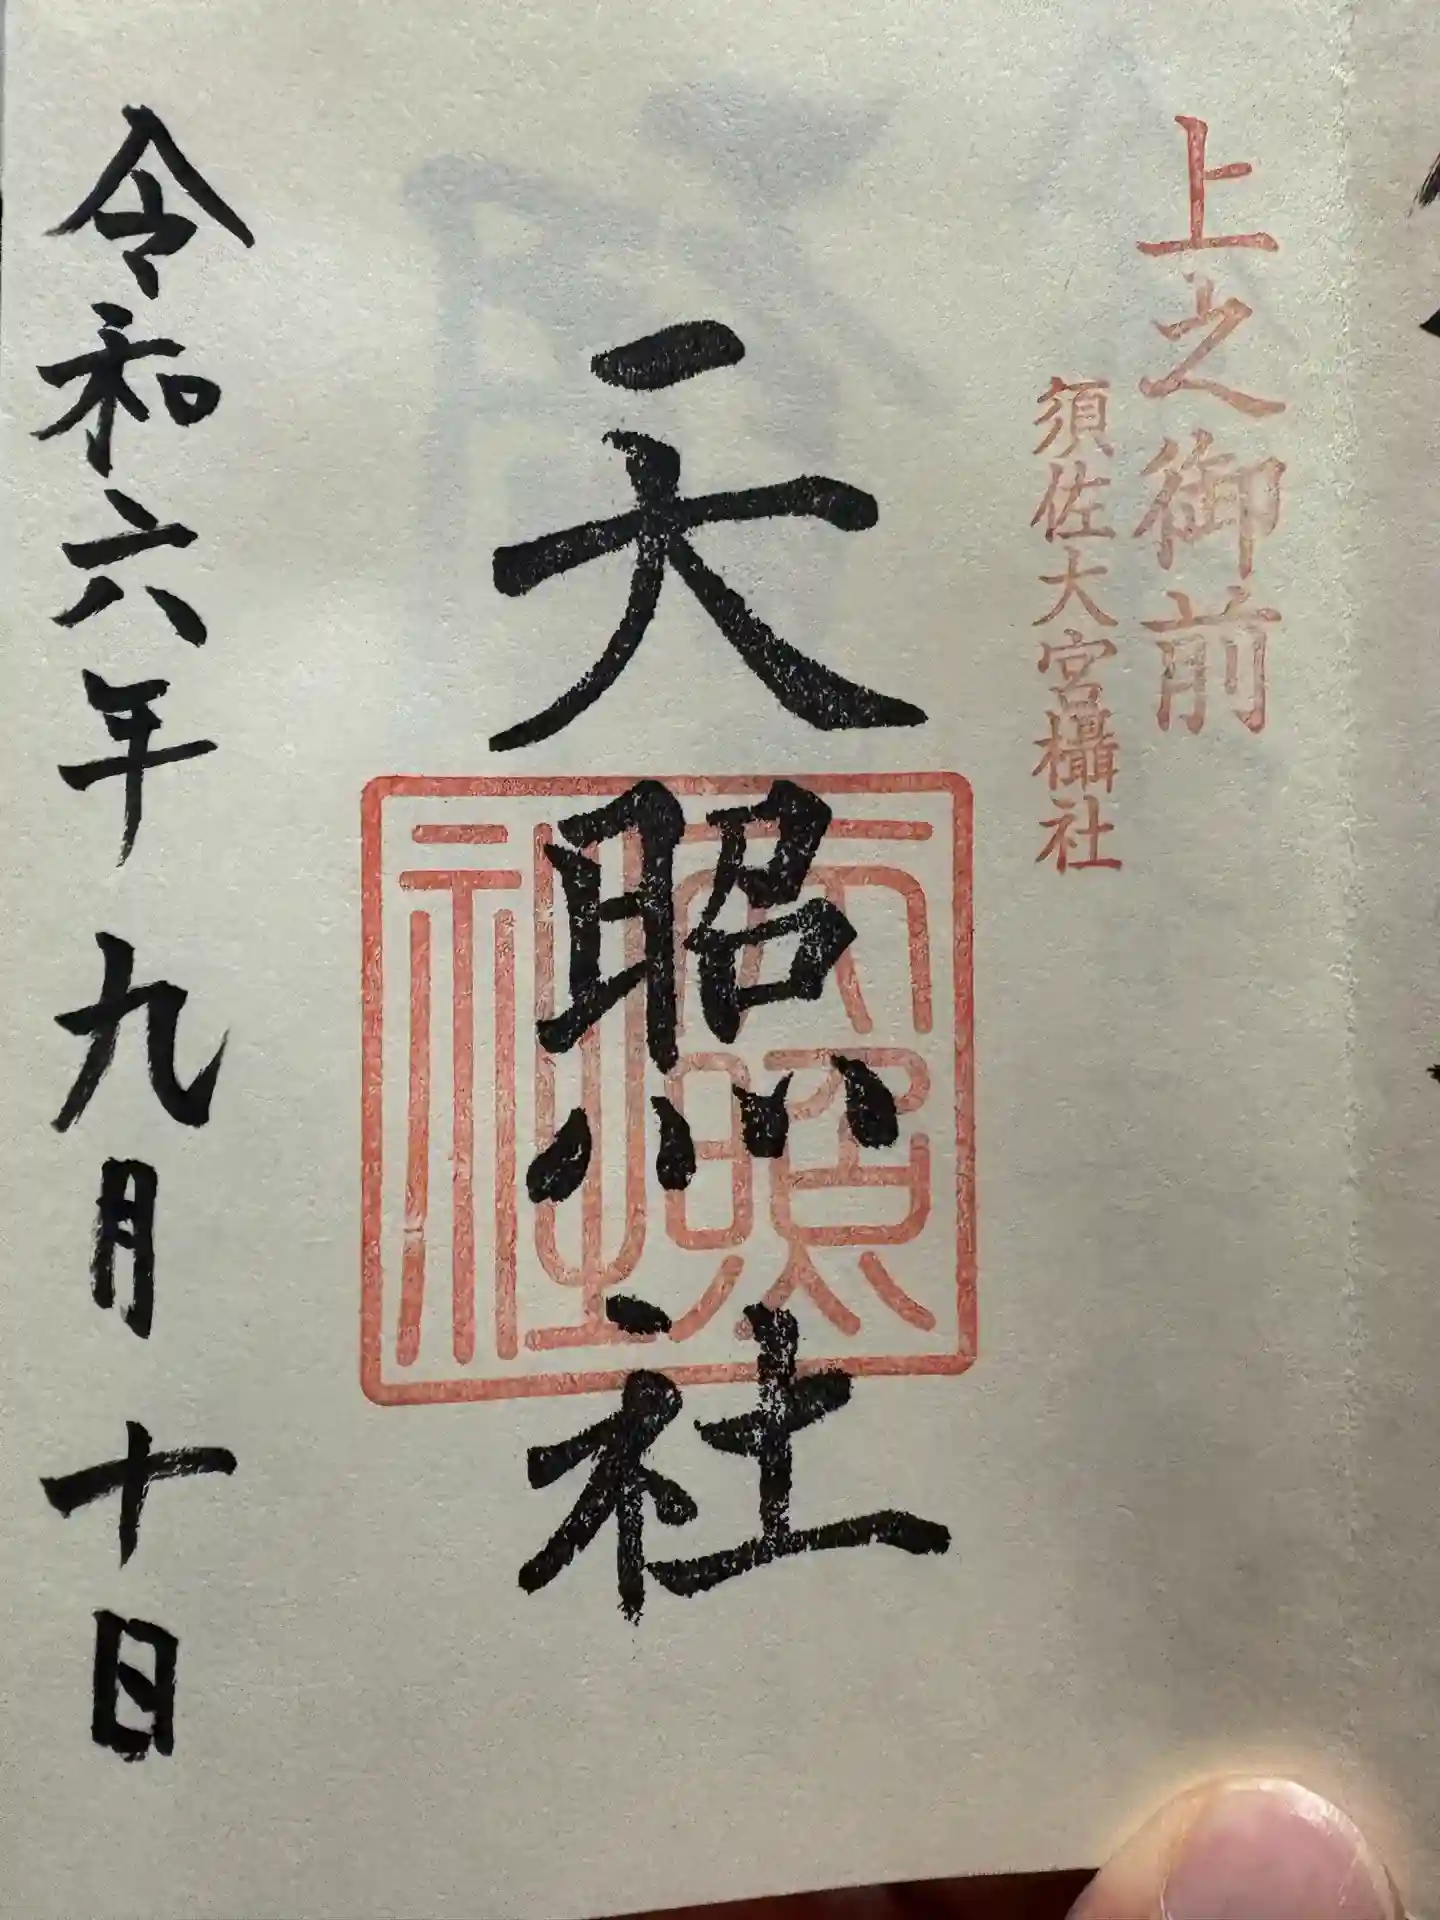 上之御前
須佐大宮攝社
天照社
天照社
令和六年九月十日